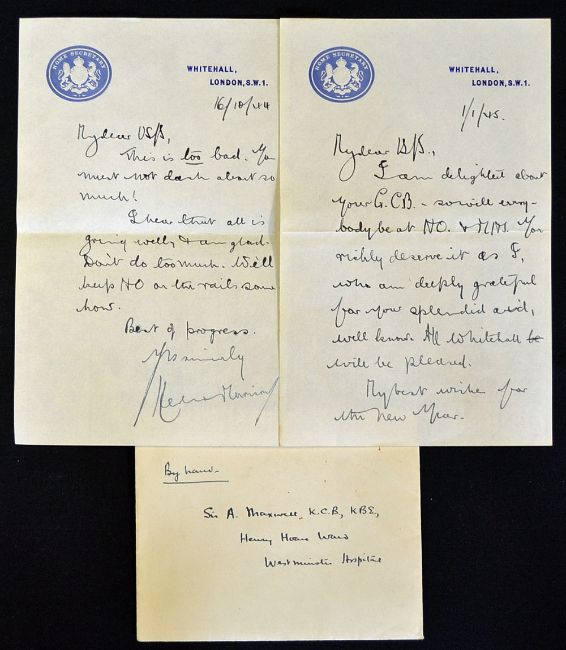 HOME SECRETARY
WHITEHALL,
LONDON, S.W.1.
16/10/44
My dear US/S,
This is too bad. You
must not dash about so
much!
I hear that all is
going well, & am glad.
Don't do too much. We'll
keep HO on the rails some
how.
Best of progress.
Yrs sincerely
Herbert Morrison
HOME SECRETARY
WHITEHALL,
LONDON, S.W.1.
1/1/45.
My dear US/S.,
I am delighted about
your G.C.B. - so will every-
body be at HO. & M.H.S. You
richly deserve it as I,
who am deeply grateful
for your splendid aid,
well know. All Whitehall be
will be pleased.
My best wishes for
the New Year.
By hand-
Sir A. Maxwell, K.C.B., K.B.E.,
Henry Hoare Ward
Westminster Hospital